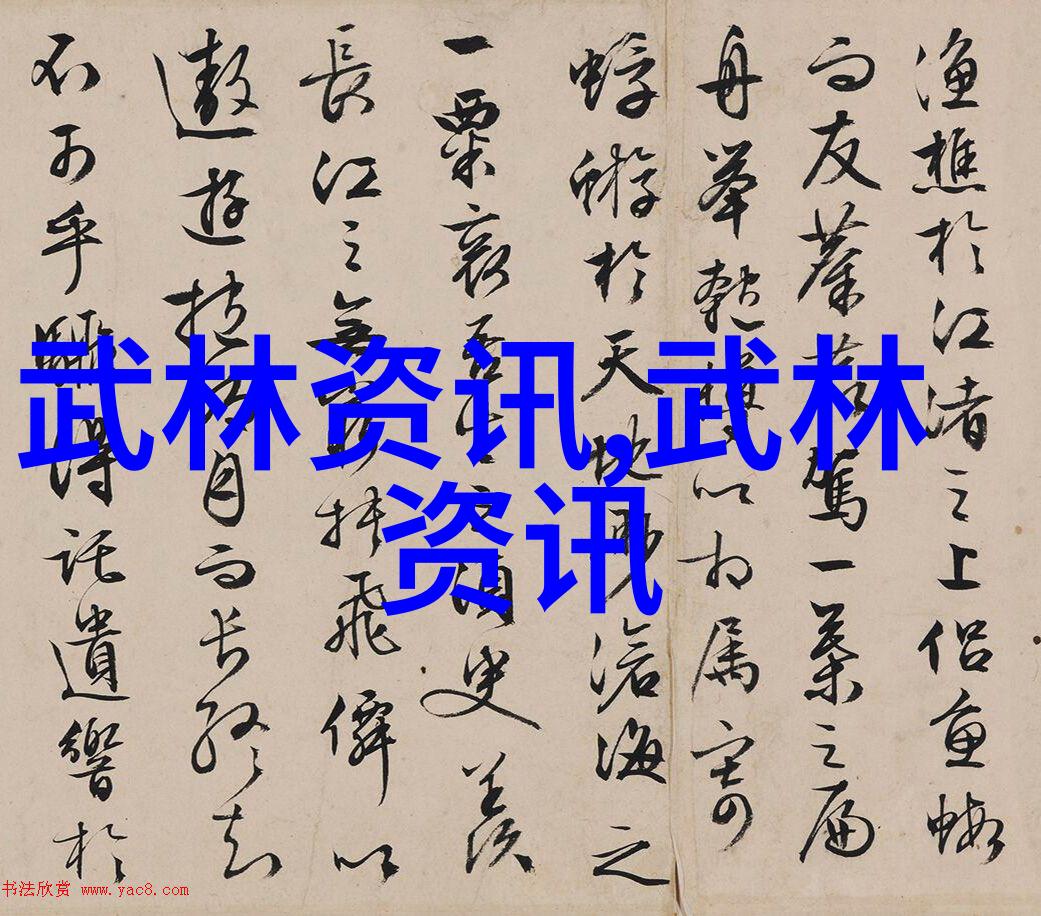 漁樵於江渚之上侣魚蝦
而友麋鹿駕一葉之扁
舟舉匏樽以相属寄
蜉蝣於天地渺滄海之
一粟哀吾生之須臾羡
長江之無窮挾飛僊以
遨遊抱明月而长終知
不可乎驟得託遺響於
武林资讯,武林
资讯
书法欣赏 www.yac8.com